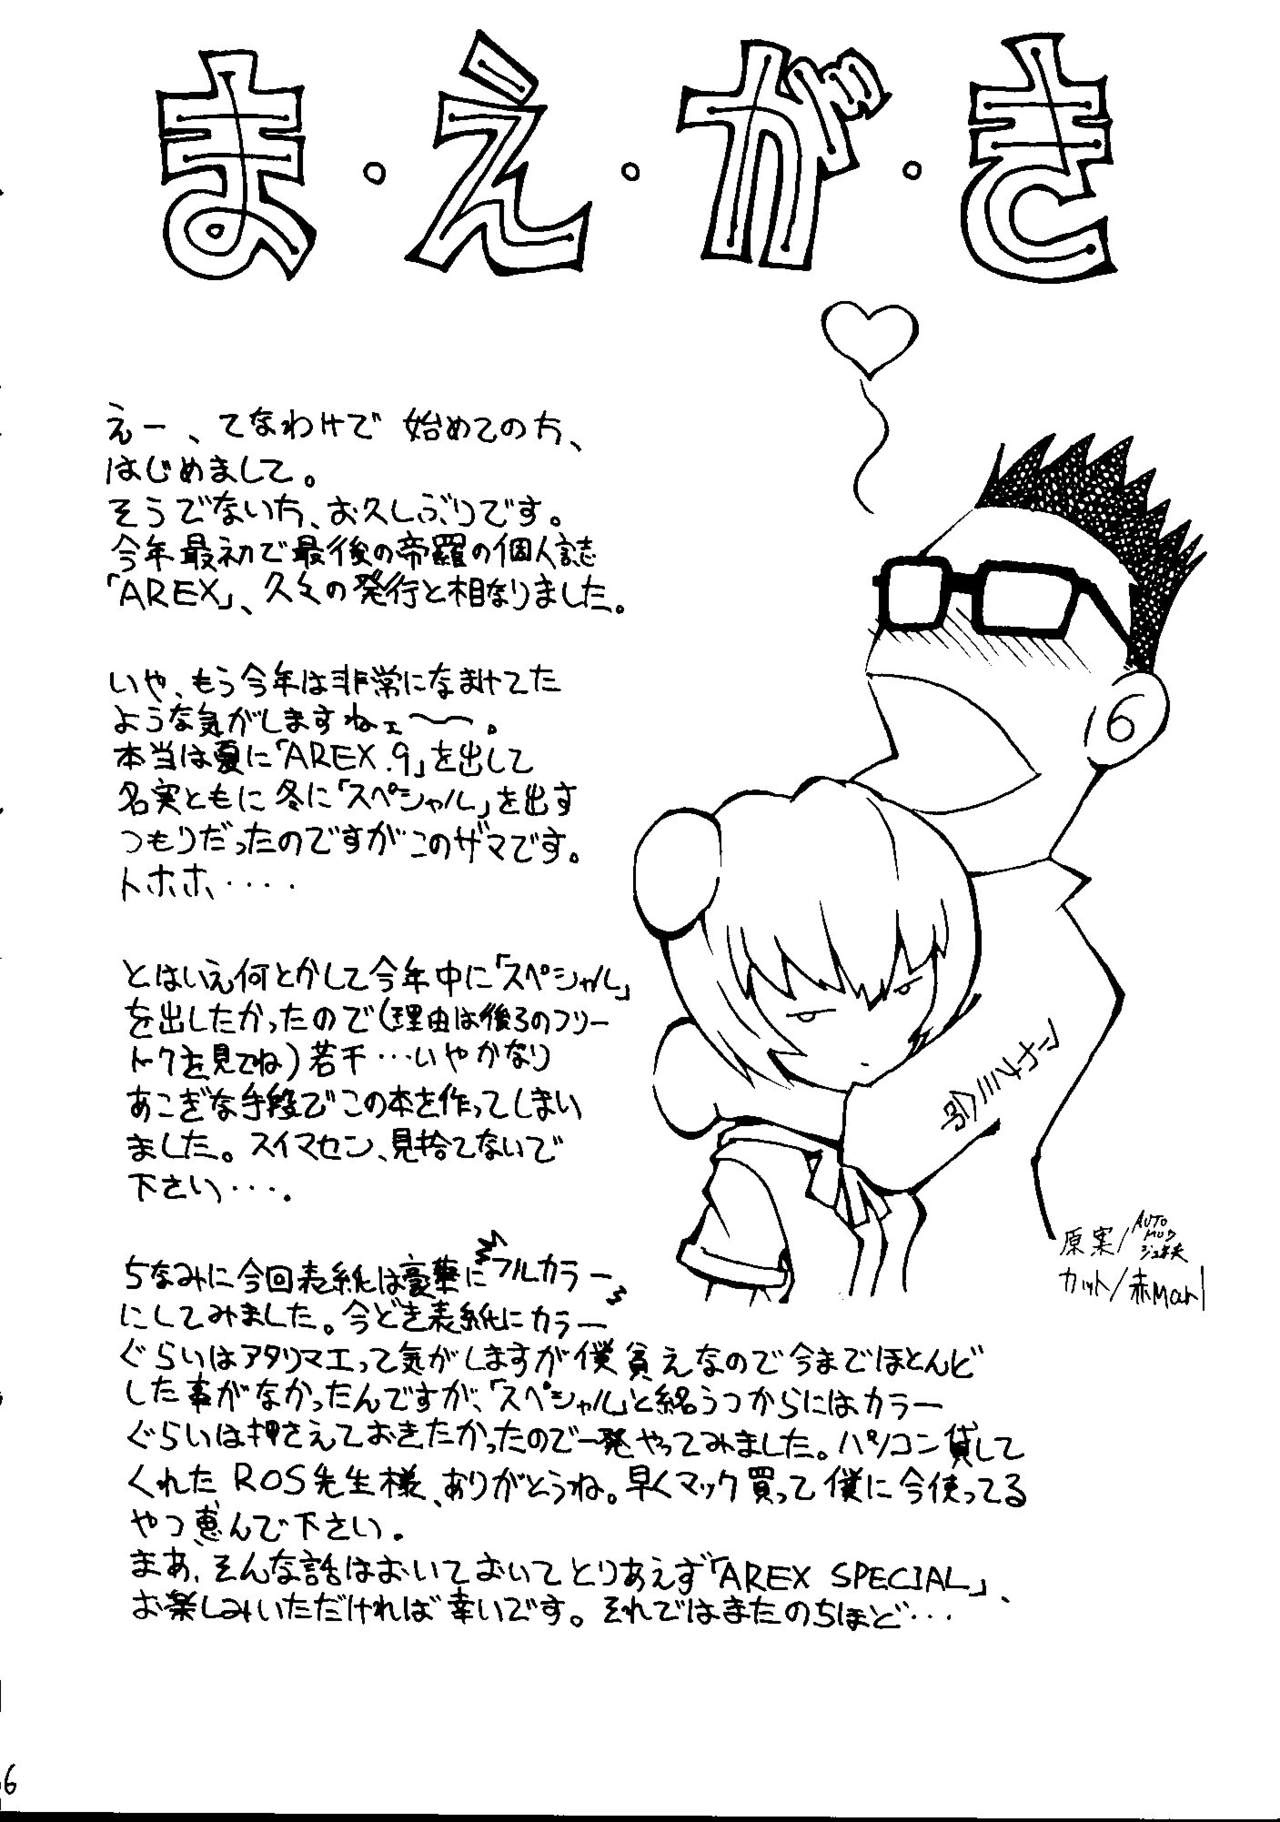 ま・え・が・き
えー、てなわけで 始めての方、
はじめまして。
そうでない方、お久しぶりです。
今年最初で最後の帝羅の個人誌
「AREX」、久々の発行と相なりました。
いや、もう今年は非常になまけてた
ような気がしますねェ〜〜。
本当は夏に「AREX.9」を出して
名実ともに冬に「スペシャル」を出す
つもりだったのですがこのザマです。
トホホ‥‥
とはいえ何とかして今年中に「スペシャル」
を出したかったので(理由は後ろのフリー
トークを見てね)若干…いやかなり
あこぎな手段でこの本を作ってしまい
ました。スイマセン、見捨てないで
下さい…。
ちなみに今回表紙は豪華にフルカラー
にしてみました。今どき表紙にカラー
ぐらいはアタリマエって気がしますが僕貧えなので今までほとんど
した事がなかったんですが、「スペシャル」と銘うつからにはカラー
ぐらいは押さえておきたかったので一発やってみました。パソコン貸して
くれた ROS先生様、ありがとうね。早くマック買って僕に今使ってる
やつ恵んで下さい。
まあ、そんな話はおいておいてとりあえず「AREX SPECIAL」、
お楽しみいただければ幸いです。それではまたのちほど…
原案/AUTO
MOD
カット/赤Marl
6